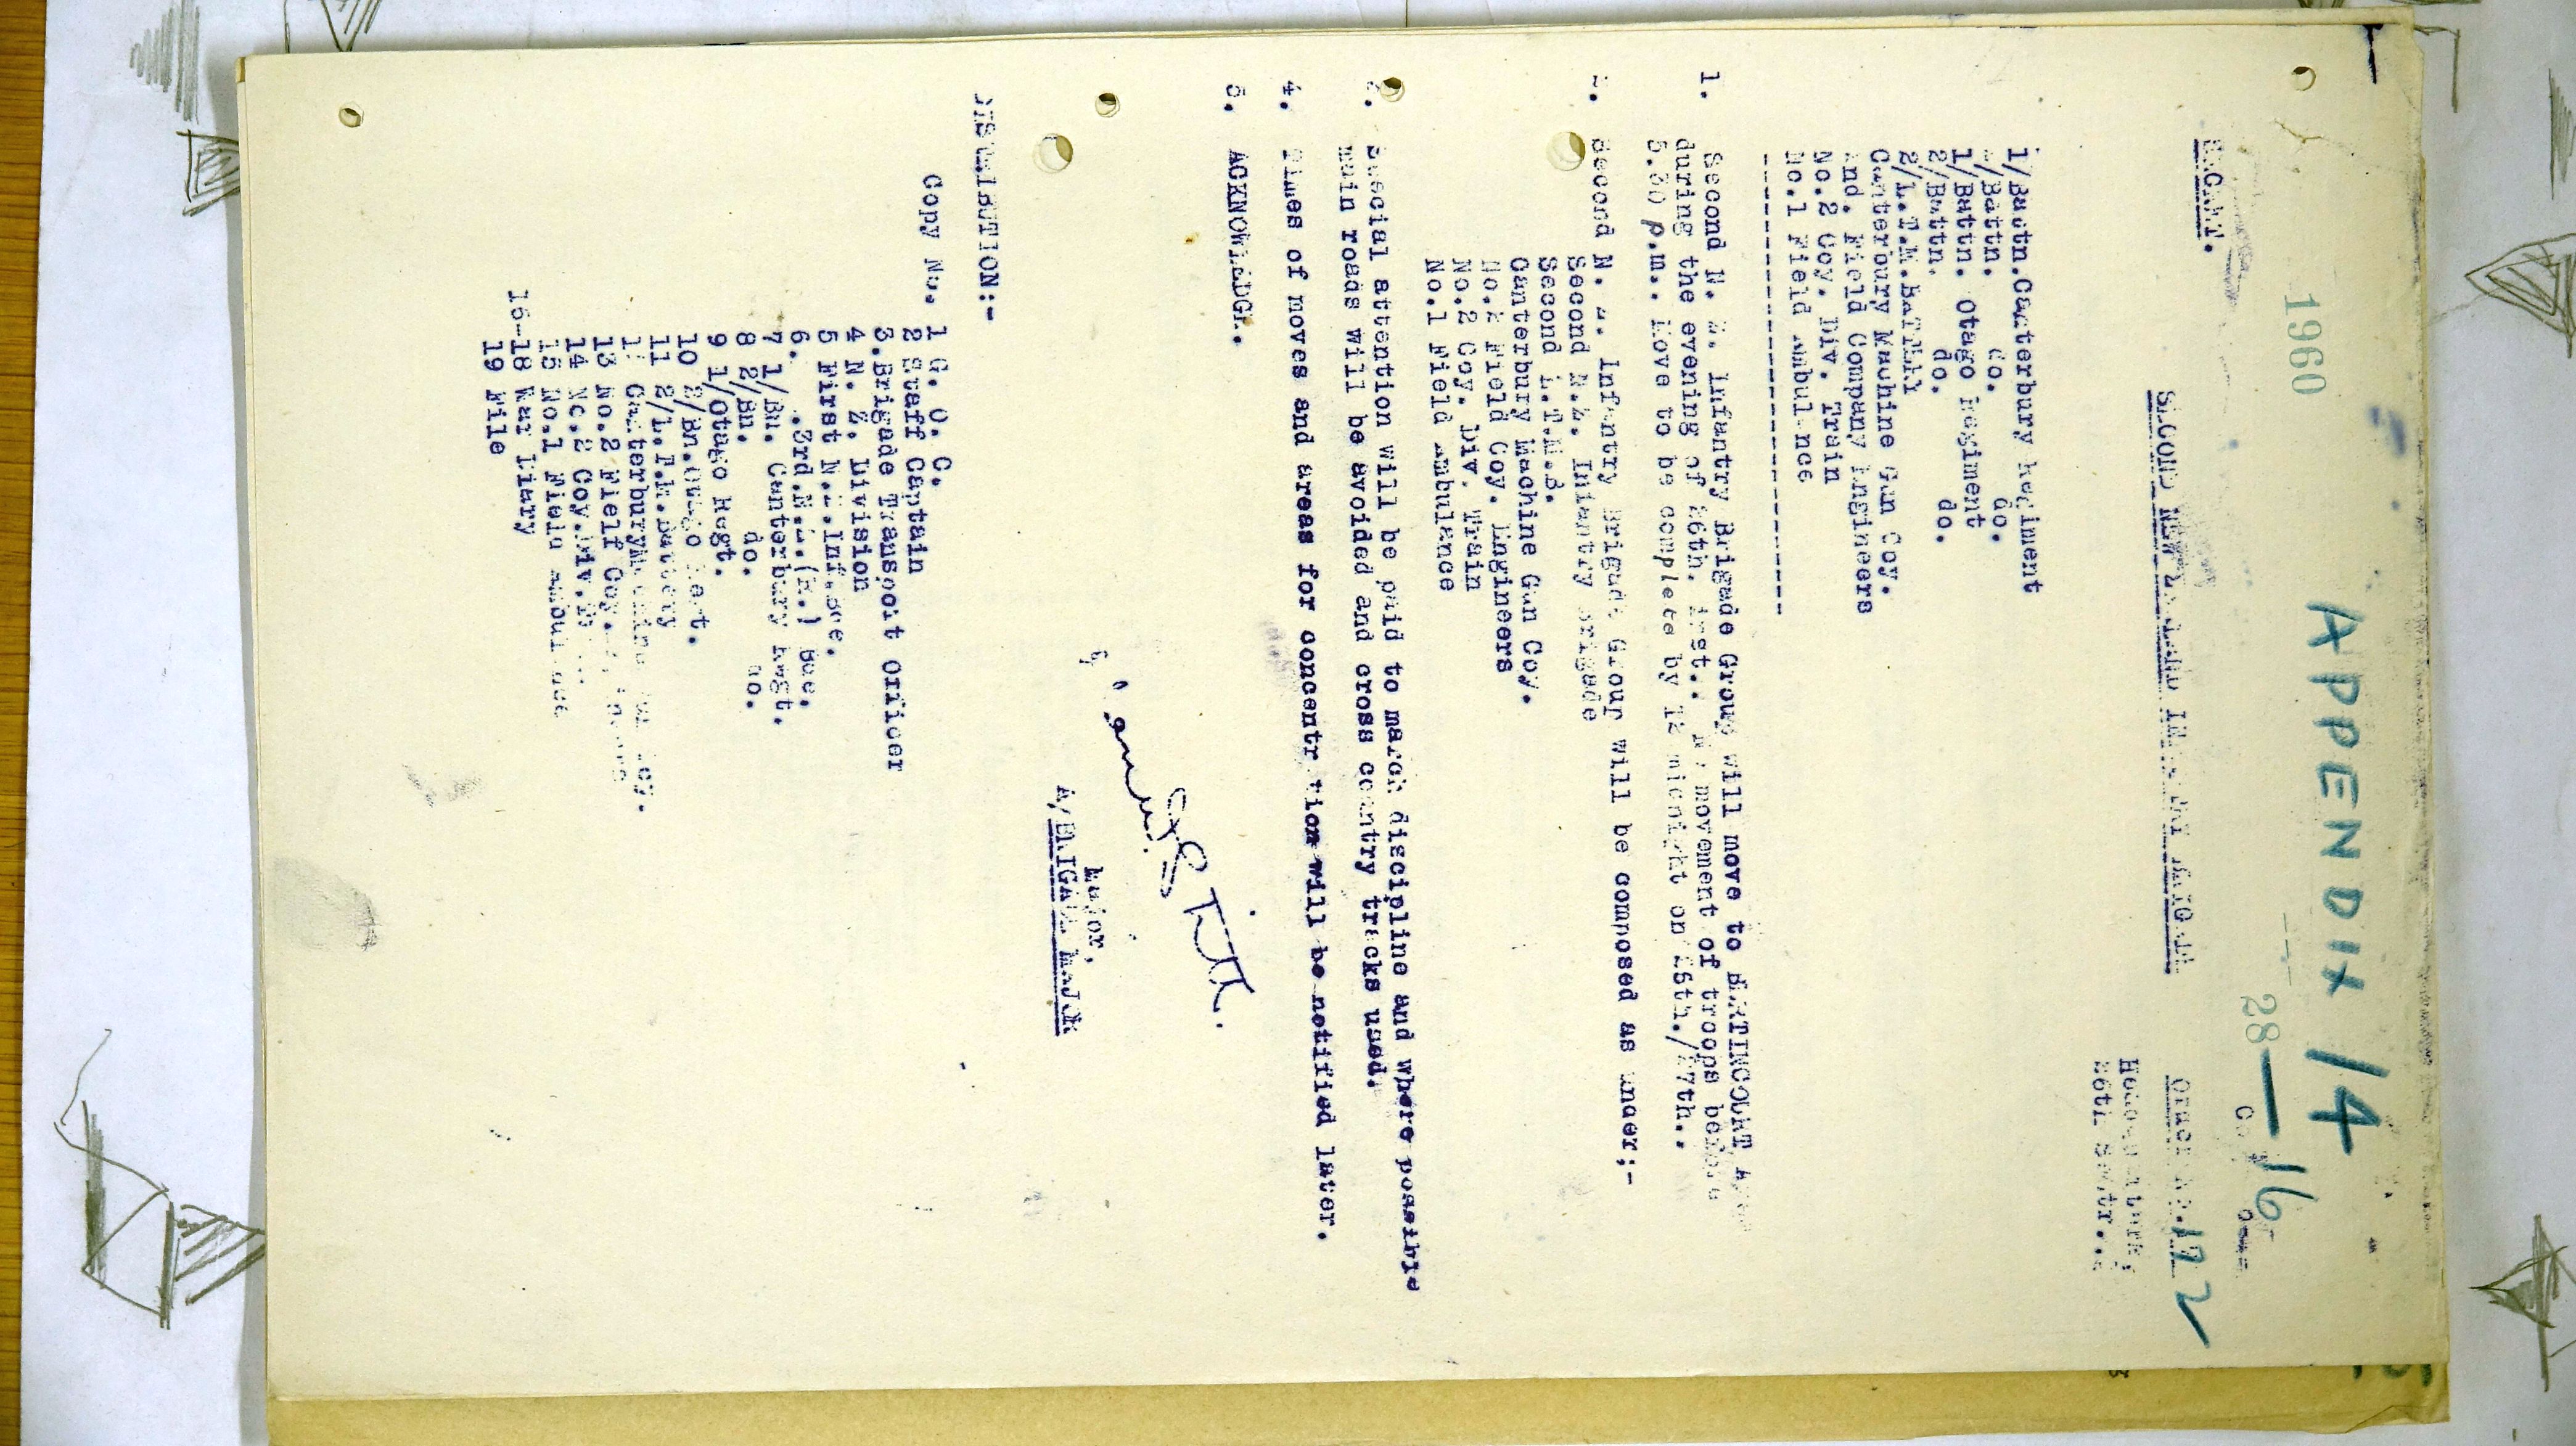 APPENDIX 14
1960
28 — 16
SECRET.
SECOND NEW ZEALAND INFANTRY BRIGADE
ORDER No. 172
Headquarters,
26th Septr...
1/Battn.Canterbury Regiment
2/Battn. do. do.
1/Battn. Otago Regiment
2/Battn. do. do.
2/L.T.M.BATTERY
Canterbury Machine Gun Coy.
2nd. Field Company Engineers
No.2 Coy. Div. Train
No.1 Field Ambulance
1. Second N. Z. Infantry Brigade Group will move to BERTINCOURT
during the evening of 26th. inst.. No movement of troops before
5.30 p.m.. Move to be complete by 12 midnight on 26th./27th..
2. Second N. Z. Infantry Brigade Group will be composed as under;-
Second N.Z. Infantry Brigade
Second L.T.M.B.
Canterbury Machine Gun Coy.
No.2 Field Coy. Engineers
No.2 Coy. Div. Train
No.1 Field Ambulance
3. Special attention will be paid to march discipline and where possible
main roads will be avoided and cross country tracks used.
4. Times of moves and areas for concentration will be notified later.
5. ACKNOWLEDGE.
Major,
A/BRIGADE MAJOR
DISTRIBUTION:-
Copy No. 1 G. O. C.
2 Staff Captain
3.Brigade Transpoit Officer
4 N. Z. Division
5 First N.Z.Inf.Bde.
6. .3rd.N.Z.(R.) Bde.
7 1/Bn. Canterbury Regt.
8 2/Bn. do. do.
9 1/Otago Regt.
10 2/Bn.Otago Regt.
11 2/L.T.M.Battery
12 CanterburyMachine Gun Coy.
13 No.2 Fielf Coy.
14 No.2 Coy.Div.
15 No.1 Field Ambulance
16-18 War Diary
19 File